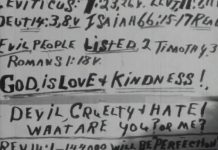 EVITICUS:
DEUT:4:3,8V ISAIAH 66:15:17
EVIL PEOPLE LISTED, 2 TIMOTHY:3
ROMANS 1:18V.
GOD, IS LOVE & KINDNESS!
DEVIL, CRUELTY & HATE!
WHAT ARE YOU? FOR ME?
REV. 14:1-144000 WILL BE PERFECTION